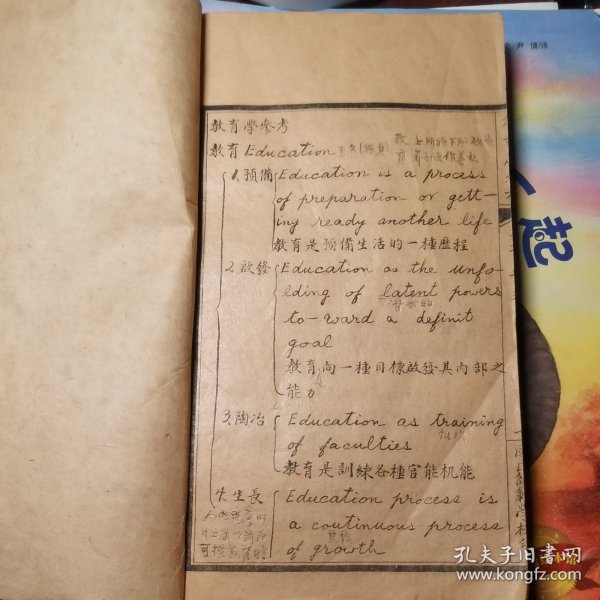 教育學參考
教育 Education
1. 預備 Education is a process
of preparation or gett-
ing ready another life
教育是預備生活的一種歷程
2. 啟發 Education as the unfo-
lding of latent powers
to-ward a definit
goal
教育向一種目標啟發其內部之
能力
3. 陶冶 Education as training
of faculties
教育是訓練各種官能机能
4. 生長 Education process is
a continuous process
of growth
尹 倩/译
一起
孔夫子旧书网
www.kongfz.com